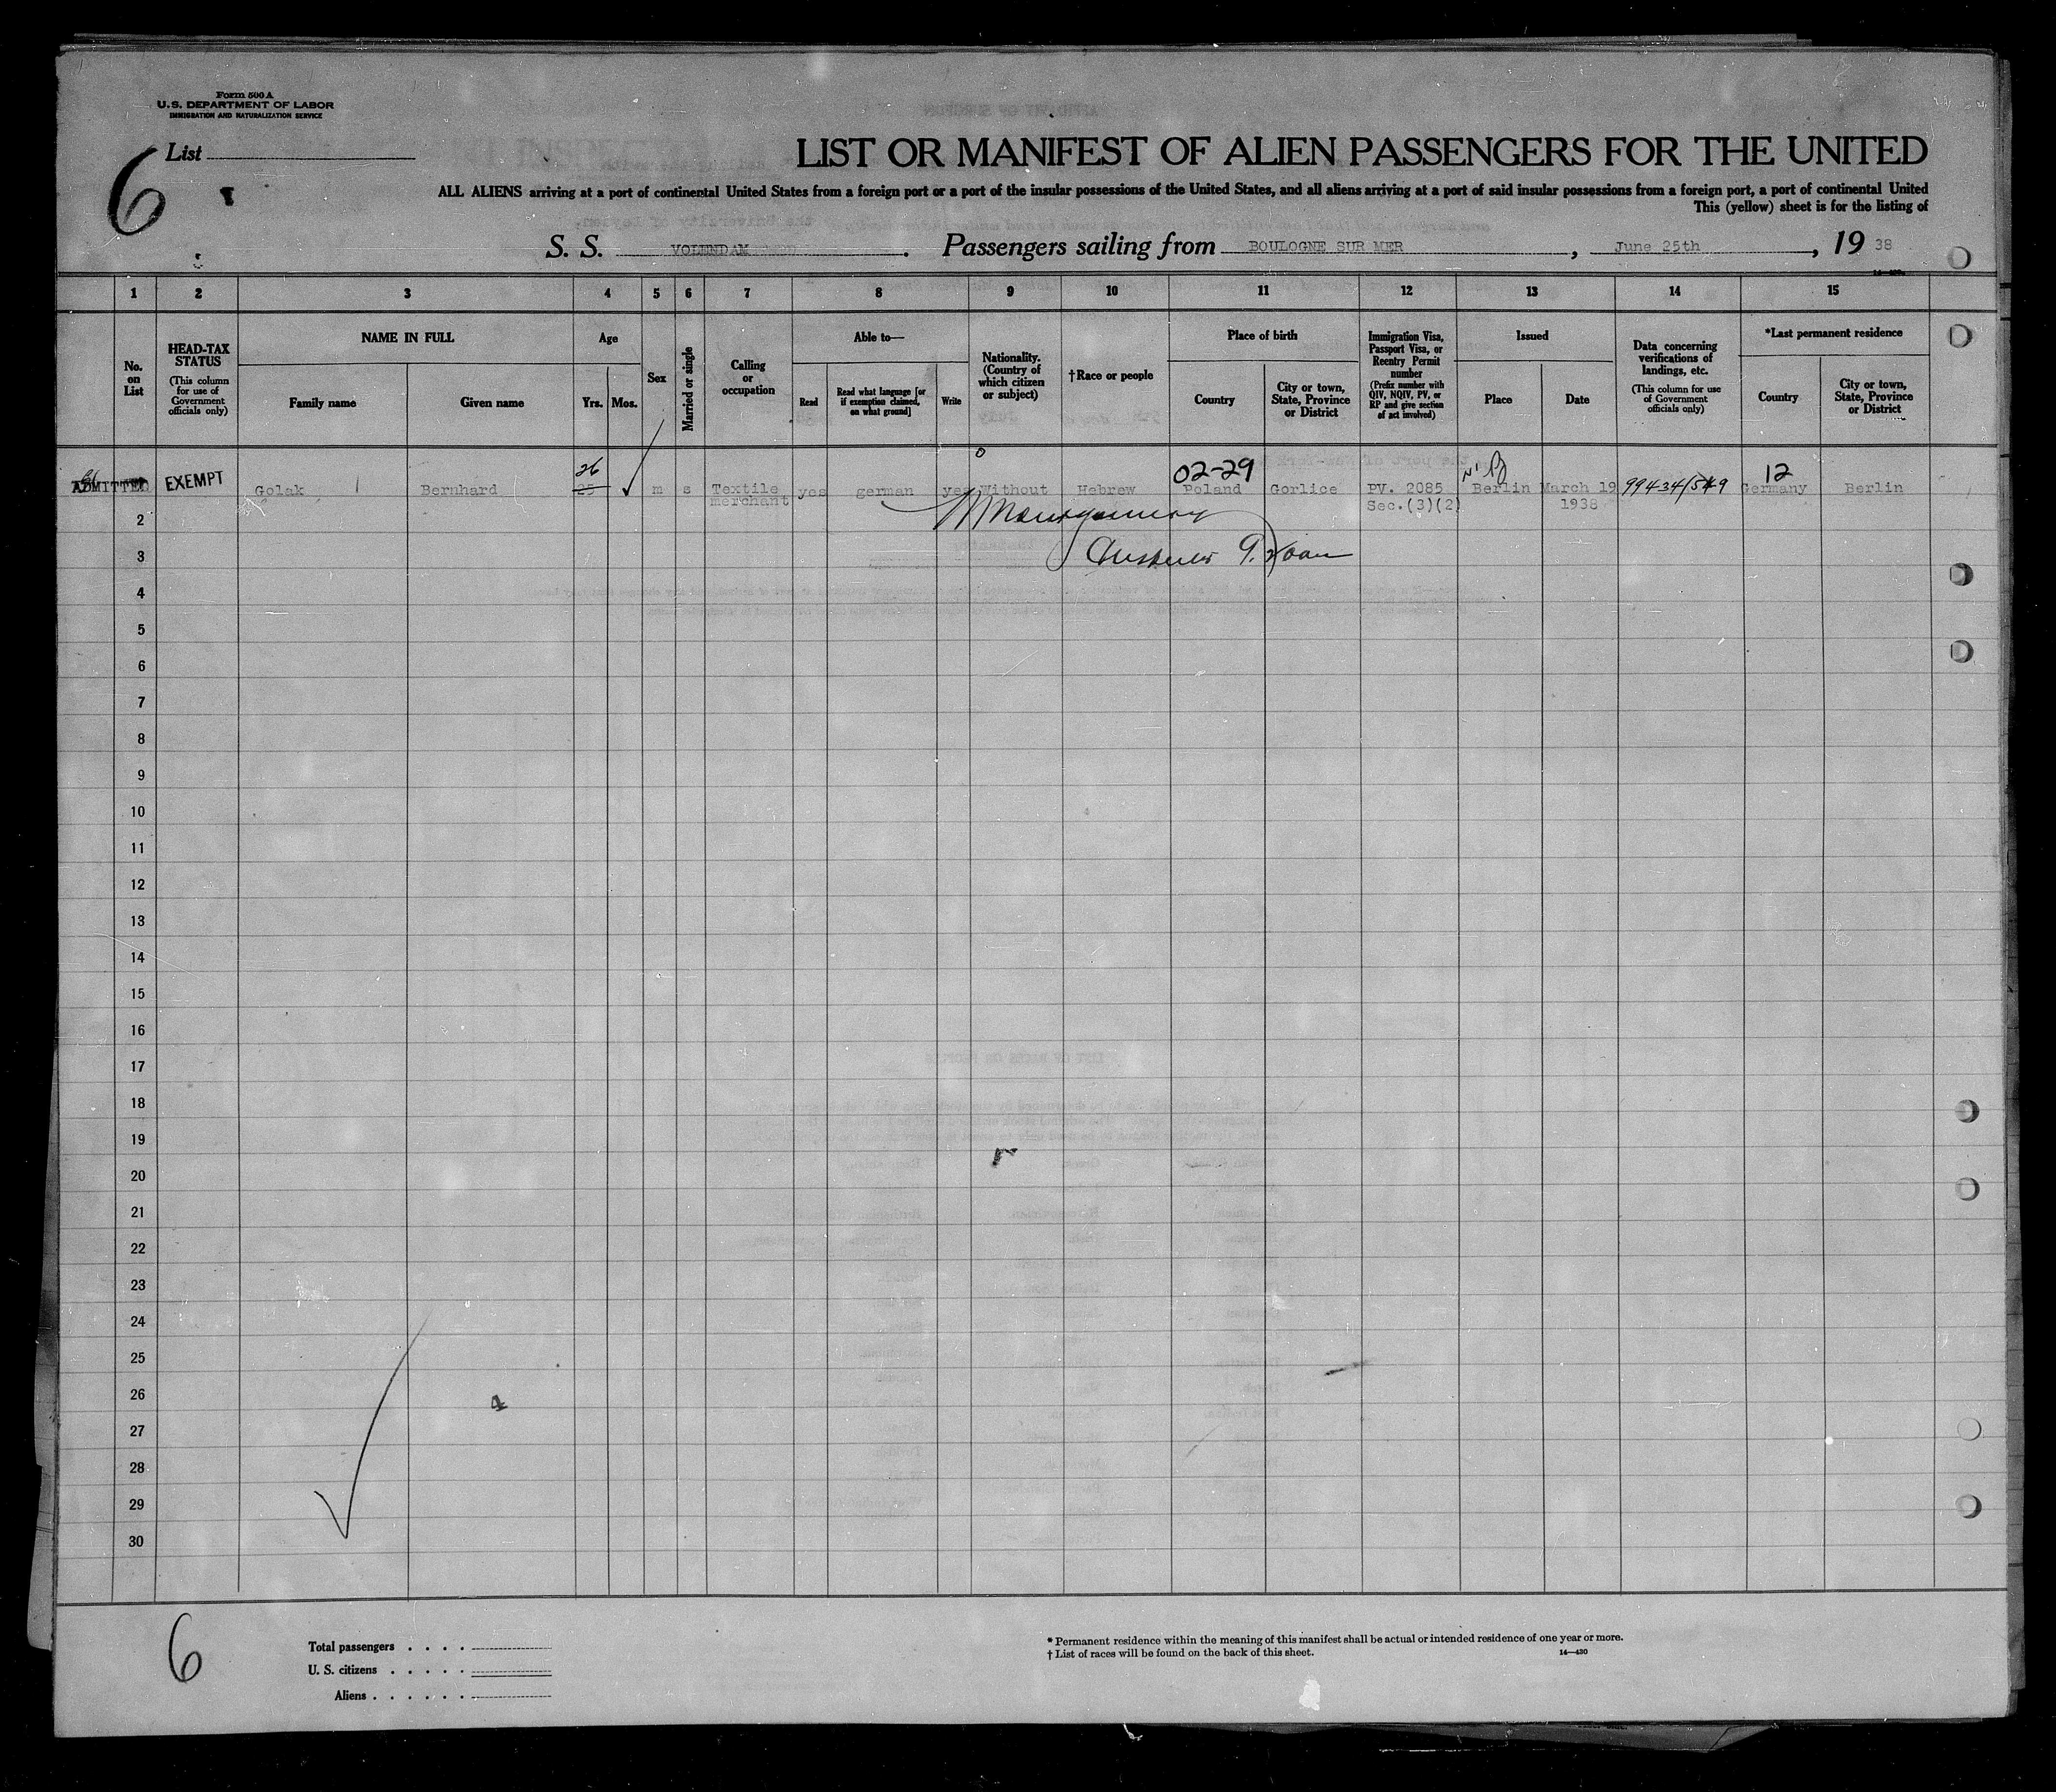 Form 500 A
U.S. DEPARTMENT OF LABOR
IMMIGRATION AND NATURALIZATION SERVICE
List
6
LIST OR MANIFEST OF ALIEN PASSENGERS FOR THE UNITED
ALL ALIENS arriving at a port of continental United States from a foreign port or a port of the insular possessions of the United States, and all aliens arriving at a port of said insular possessions from a foreign port, a port of continental United
This (yellow) sheet is for the listing of
S. S. VOLENDAM. Passengers sailing from BOULOGNE SUR MER, June 25th, 19 38
1 2 3 4 5 6 7 8 9 10 11 12 13 14 15
No. on List
HEAD-TAX STATUS
(This column for use of Government officials only)
NAME IN FULL
Family name
Given name
Age
Yrs.
Mos.
Sex
Married or single
Calling or occupation
Able to—
Read
Read what language [or if exemption claimed, on what ground]
Write
Nationality. (Country of which citizen or subject)
†Race or people
Place of birth
Country
City or town, State, Province or District
Immigration Visa, Passport Visa, or Reentry Permit number
(Prefix number with QIV, NQIV, PV, or RP and give section of act involved)
Issued
Place
Date
Data concerning verifications of landings, etc.
(This column for use of Government officials only)
*Last permanent residence
Country
City or town, State, Province or District
26 02-29 12
ADMITTED EXEMPT Golak Bernhard 25 m s Textile yes german yes Without Hebrew Poland Gorlice PV. 2085 Berlin March 19 99434/549 Germany Berlin
merchant Sec.(3)(2) 1938
2 Montgomery
3
4
5
6
7
8
9
10
11
12
13
14
15
16
17
18
19
20
21
22
23
24
25
26
4
27
28
29
30
6
Total passengers
U. S. citizens
Aliens
* Permanent residence within the meaning of this manifest shall be actual or intended residence of one year or more.
† List of races will be found on the back of this sheet.
14—430